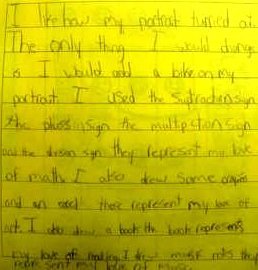 I like how my portrait turned out.
The only thing I would change
is I would add a bike on my
portrait I used the Subtraction sign
the pluss sign the multiplation sign
and the division sign they represent my love
of math I also drew some
and an these represent my love of
art. I also drew a book the book represents
my love of reading I drew music nots they
represent my love of music